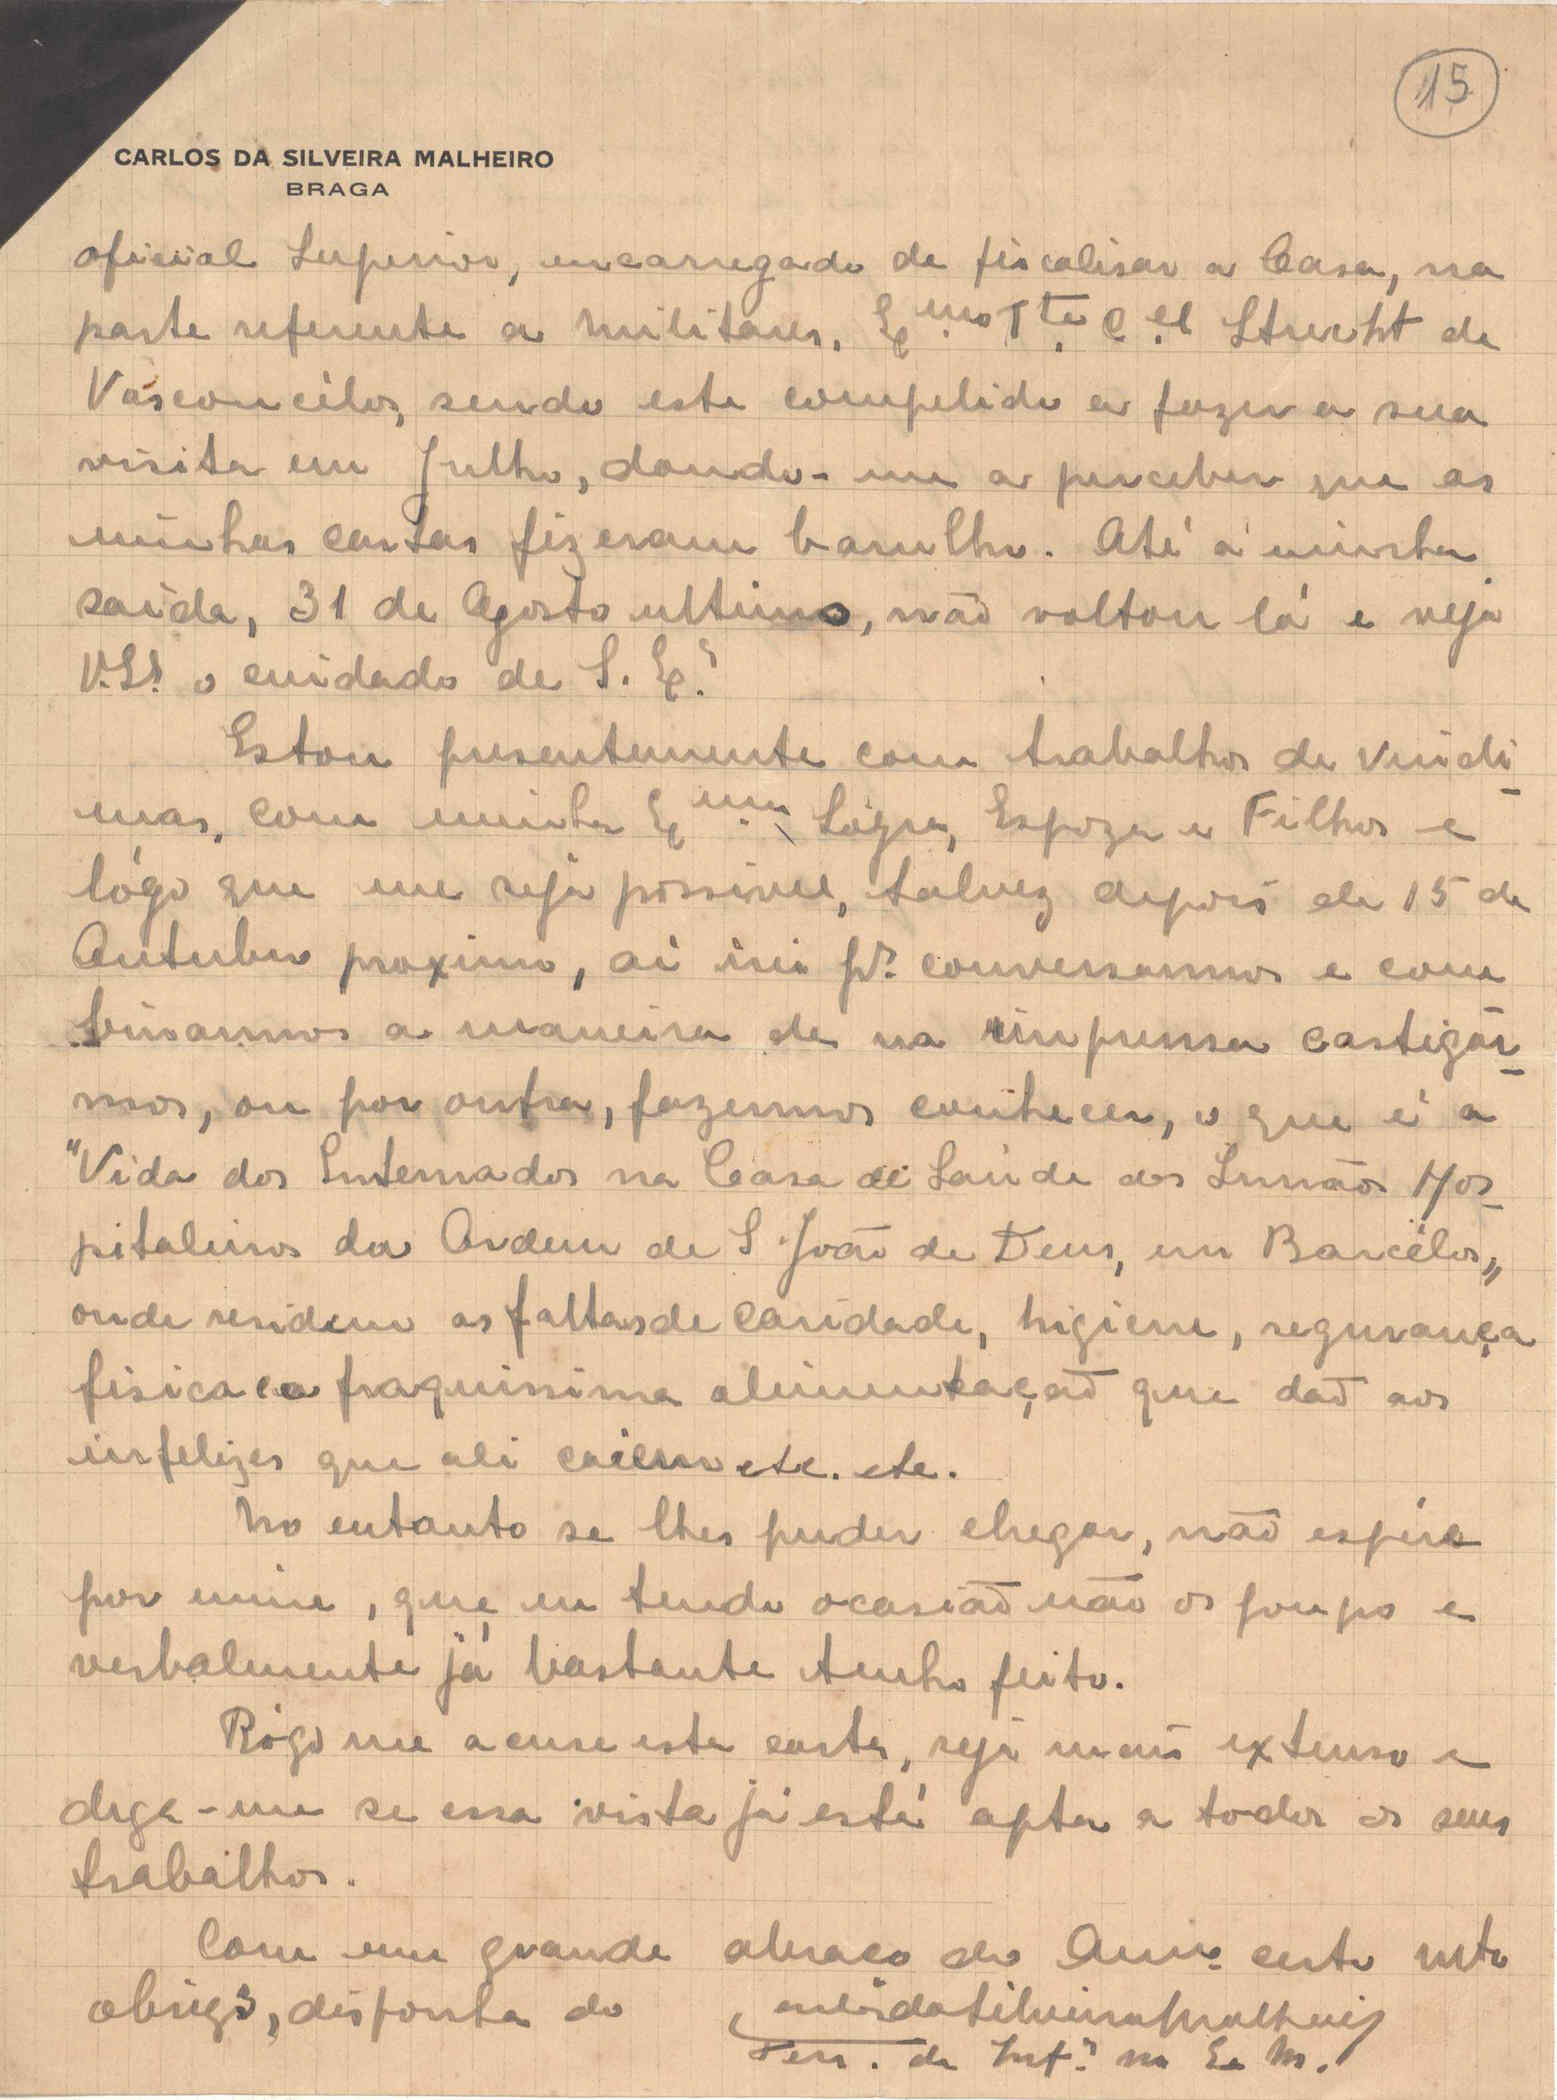 15
CARLOS DA SILVEIRA MALHEIRO
BRAGA
oficial Superior, encarregado de fiscalisar a Casa, na
parte referente a militares, Exmo Tte Cel Strecht de
Vasconcélos, sendo este compelido a fazer a sua
visita em Julho, dando-me a perceber que as
minhas cartas fizeram barulho. Até á minha
saida, 31 de Agosto ultimo, não voltou lá e veja
V. Sª. o cuidado de S. Exª.
Estou presentemente com trabalhos de vindi-
mas, com minha Exma Sógra, Espoza e Filhos e
lógo que me seja possivel, talvez depois de 15 de
Outubro proximo, aí irei pª. conversarmos e com
binarmos a maneira de na imprensa castigár-
mos, ou por outra, fazermos conhecer, o que é a
"Vida dos Internados na Casa de Saúde dos Irmãos Hos-
pitaleiros da Ordem de S. João de Deus, em Barcélos„
onde residem as faltas de caridade, higiene, segurança
fisica e a fraquissima alimentação que dão aos
infelizes que ali caiem etc. etc.
No entanto se lhes puder chegar, não espére
por mim, que eu tendo ocasião não os poupo e
verbalmente já bastante tenho feito.
Rógo me acuse esta carta, seja mais extenso e
diga-me se essa vista já está apta a todos os seus
trabalhos.
Com um grande abraço do Amº. certo mto
obrigº, disponha do Carlos da Silveira Malheiro
Ten. de Infª. no Q. M.